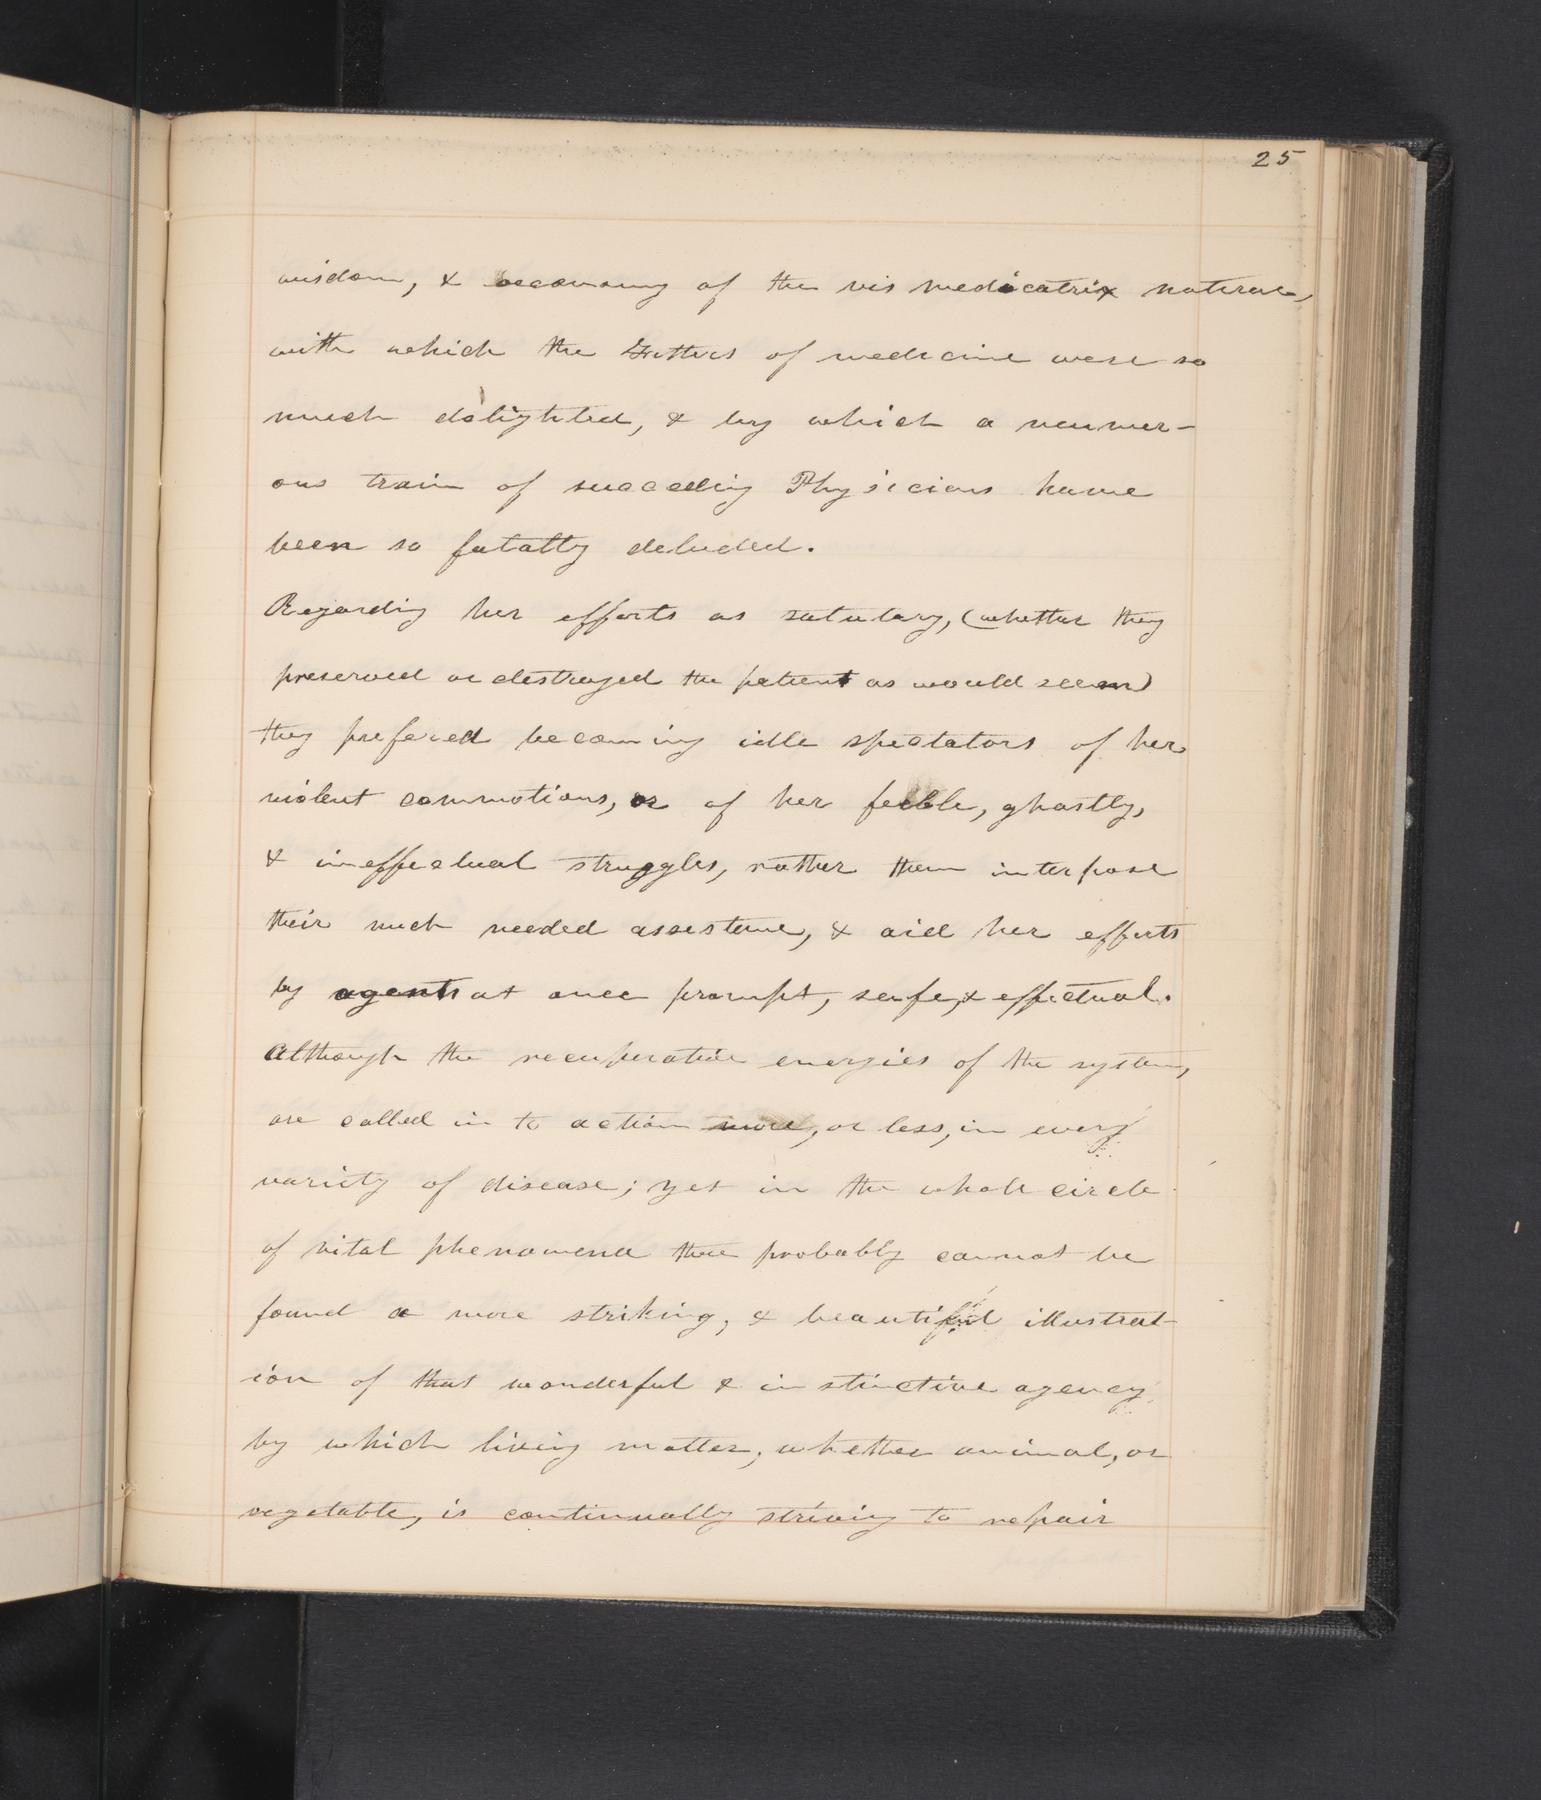 25
wisdom, & oeconomy of the vis medicatrix naturae,
with which the Fathers of medicine were so
much delighted, & by which a numer-
ous train of succeeding Physicians have
been so fatally deluded.
Regarding her efforts as salutary, (whether they
preserved or destroyed the patient as would seem)
they prefered becoming idle spectators of her
violent commotions, or of her feeble, ghastly,
& ineffectual struggles, rather than interpose
their much needed assistance, & aid her efforts
by agents at once prompt, safe, & effectual.
Although the recuperative energies of the system,
are called in to action more, or less, in every
variety of disease; yet in the whole circle
of vital phenomena there probably cannot be
found a more striking, & beautiful illustrat-
ion of that wonderful & instinctive agency
by which living matter, whether animal, or
vegetable, is continually striving to repair